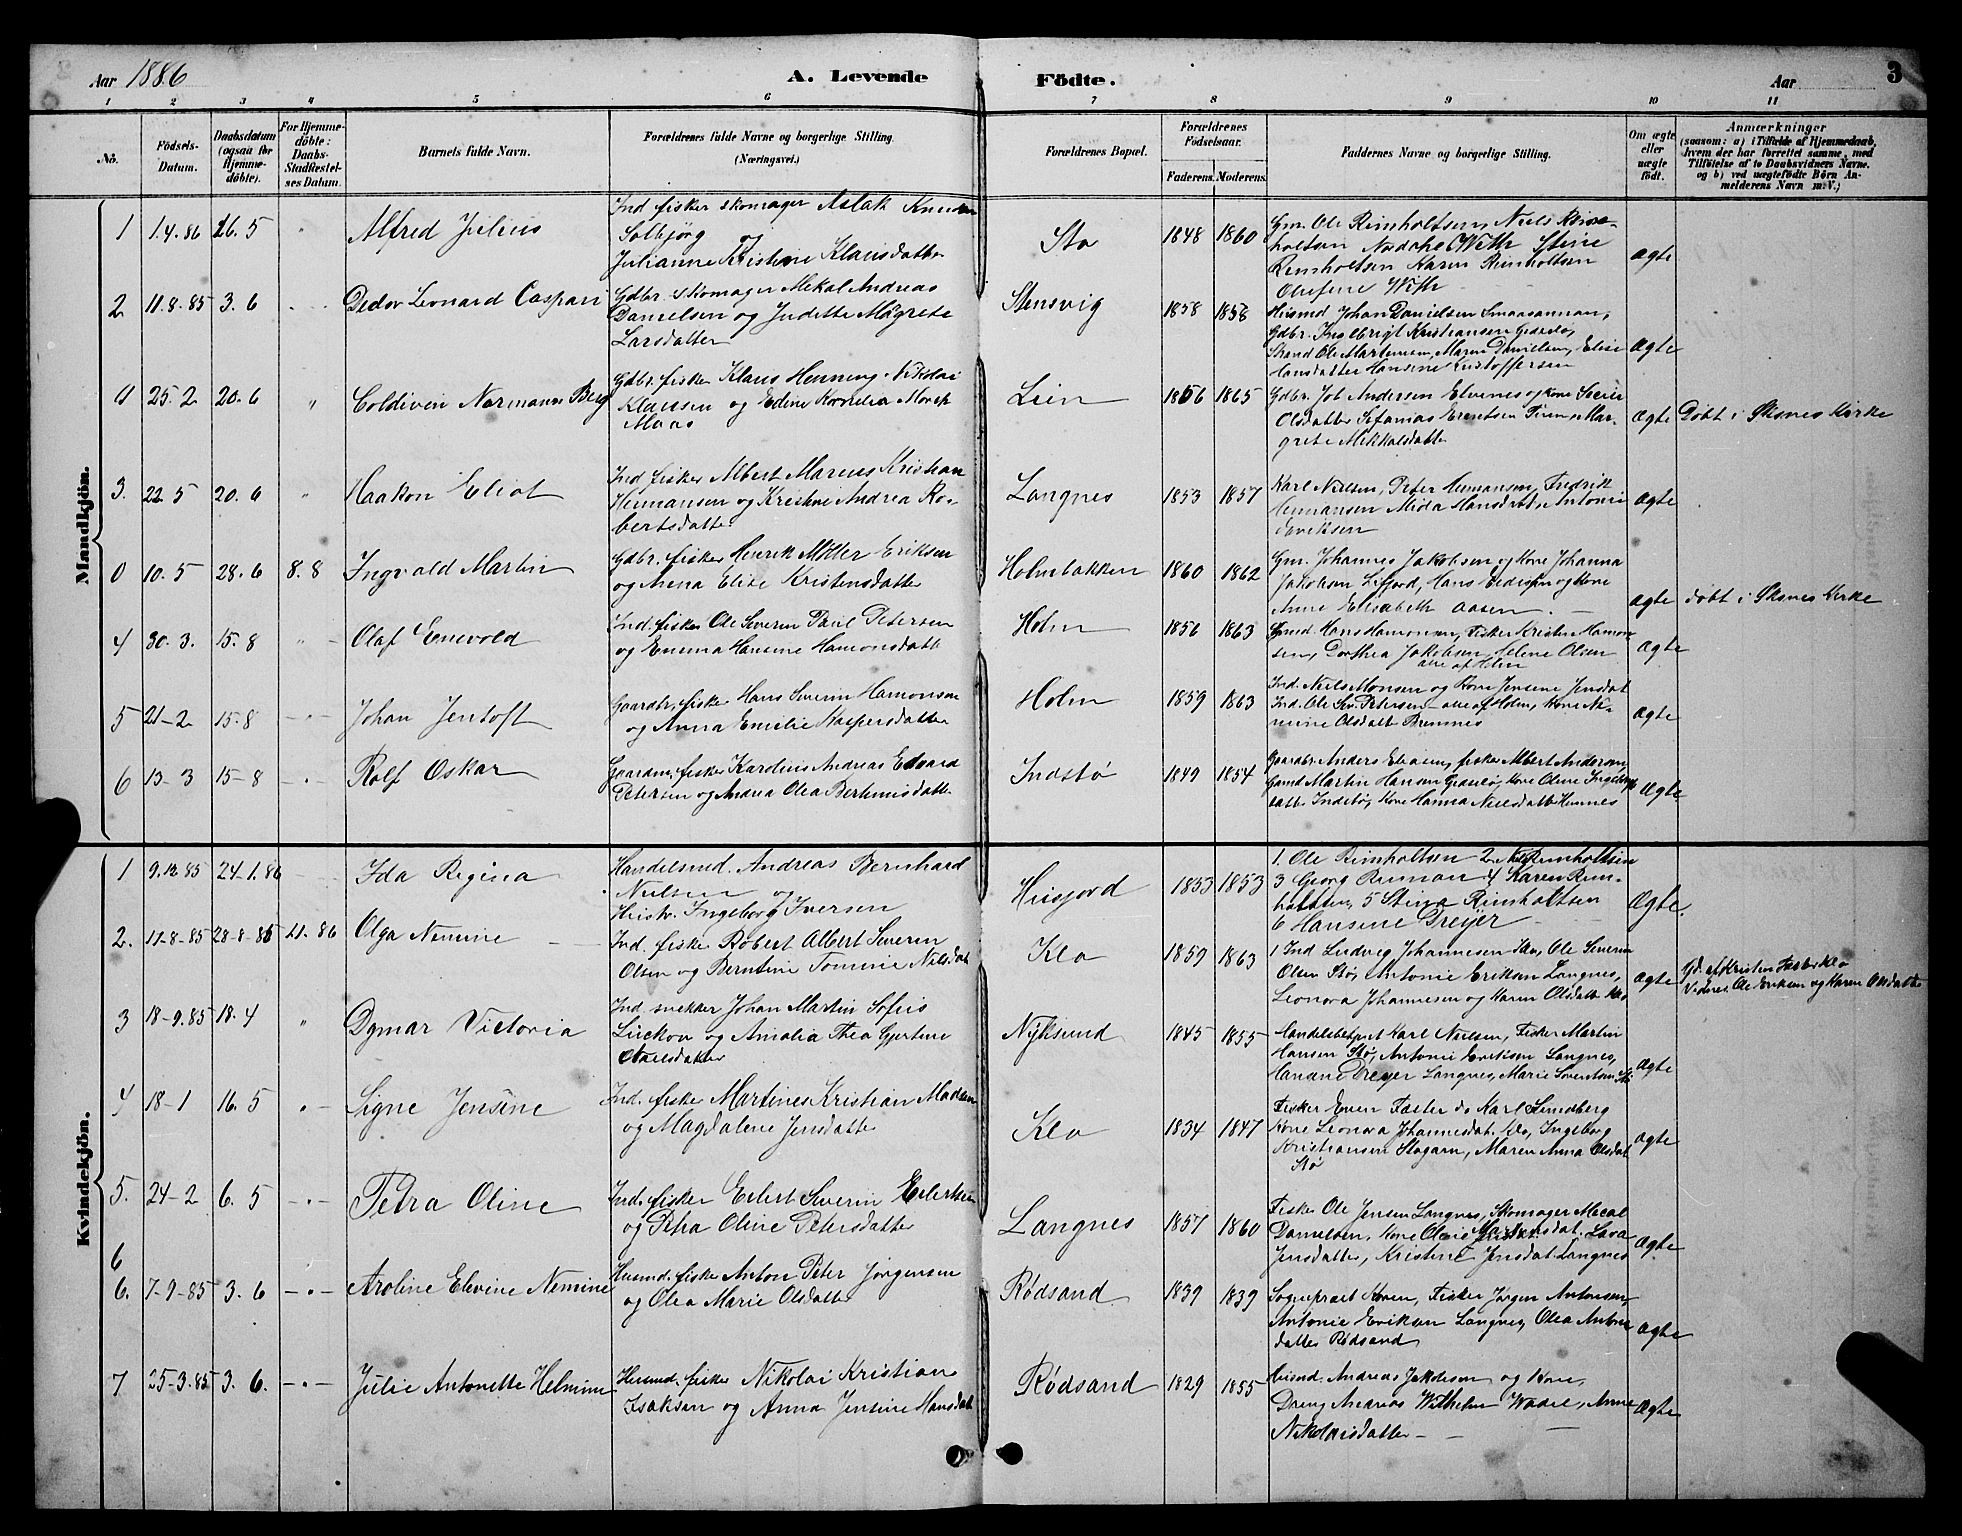 Aar 1886
A. Levende Födte.
Aar
3
1 2 3 4 5 6 7 8 9 10 11
No.
Födsels-Datum.
Daabsdatum (ogsaa for Hjemme-döbte).
For Hjemme-döbte: Daabs-Stadfæstel-ses Datum.
Barnets fulde Navn.
Forældrenes fulde Navne og borgerlige Stilling. (Næringsvei.)
Forældrenes Bopæl.
Forældrenes Födselsaar.
Faderens. Moderens.
Faddernes Navne og borgerlige Stilling.
Om ægte eller uægte födt.
Anmærkninger
(saasom: a) i Tilfælde af Hjemmedaab,
hvem der har forrettet samme, med
Tilföielse af to Daabsvidners Navne.
og b) ved uægtefödte Börn An-
melderens Navn m. V.)
Mandkjön.
1 1.4.86 26.5 "
Alfred Julius
Ind fisker skomager Aslak Knudsen
Solbjørg og
Julianne Kristine Klausdatter
Stø
1848 1860
Gm. Ole Reinholtsen, Niels Rein-
holtsen With Stine
Reinholtsen Karen Reinholtsen
Olufine With
Ægte
2 11.8.85 3.6
Detlov Leonard Caspari
Gdbr. skomager Mekal Andreas
Danielsen og Judette Magrete
Larsdatter
Stensvig
1858 1858
Husmd Johan Danielsen
Gdbr. Ingelbrigt Kristiansen
Strand Ole Martensen, Maren Danielsen, Elise
Hansdatter Hansine Kristoffersen
Ægte
0 25.2 20.6 "
Coldiven Normann Berg
Gdbr. fisker Klaus Henning Nikolai
Klausen og Edine Kornelia
Maas
Lein
1856 1865
Gdbr. Job Andersen Elvenes og kone
Olsdatter Sefanias Erentsen Mar-
grete Mekkalsdatter
Ægte
Døbt i Øksnes Kirke
3. 22.5 20.6 "
Haakon Eliot
Ind fisker Albert Marius Kristian
Hermansen og Kristine Andrea Ro-
bertsdatter
Langnes
1853 1857
Karl Nielsen, Peter Hermansen, Fredrik
Hermansen Mida Hansdat, Antonie
Eriksen
Ægte
0 10.5 28.6 8.8
Ingvald Martin
Gdbr. fisker Henrik Møller Eriksen
og Anna Elise Kristensdatter
Holmbakken
1860 1862
Gm. Johannes Jakobsen og kone Johanna
Jakobsen Hans og kone
Anne Elisabeth Aasen.
Ægte
døbt i Øksnes Kirke
4 30.3. 15.8 "
Olaf Enevold
Ind. fisker Ole Severin Paul Petersen
og Emma Hansine Hamonsdatt
Holm
1856 1863
Hans Hamonsen, Fisker Kristen Hamon-
sen, Dorthea Jakobsen, Helene Olsen
alle af Holm
Ægte
5 21-2 15.8 -"-
Johan Jentoft
Gaardbr, fisker Hans Severin Hamonsen
og Anna Emelie Kaspersdatter
Holm
1859 1863
Ind. Niels Monsen og Kone Jensine Jensdat
Ind. Ole Sev. Petersen - alle af Holm, Kone Ni-
mine Olsdatt Bremnes
Ægte
6 13-3 15-8 -"-
Rolf Oskar
Gaardm, fisker Karolius Andreas Edvard
Petersen og Andrea Olea Bertinusdatter
Indstø
1849 1854
Gaardbr Anders fisker Albert Andersen,
Martin Hansen kone Oline Ingebrigt-
datter Indstø, Kone Hanna Nielsdatter
Ægte
Kvindekjön.
1 9.12.85 24-1.86
Ida Regina
Handelsmd. Andreas Bernhard
Nielsen og
Hustr. Ingeborg Iversen
Husfjord
1853 1853
1. Ole Reinholtsen 2 Niels Reinholtsen
3 Georg 4 Karen Rein-
holtsen, 5 Stina Reinholtsen
6 Hansine Dreyer
Ægte.
2. 17-8-85 28-8-85 11.86
Olga Nimine
Ind. fisker Robert Albert Severin
Olsen og Berntine Tomine Nielsdat
Klo
1859 1863
1 Ind Ludvig Johannesen Klo, Ole Severin
Olsen Stø, Antonie Eriksen Langnes,
Leonora Johannesen og Karen Olsdatt Klo
Ægte
Gd. af Kristen Klo
Vidnes: Ole Eriksen og Karen Olsdatter
3 18-9.85 18.4 "
Dgmar Victoria
Ind snekker Johan Martin Sofus
Lückow og Amalia Thea Gjertine
Nyksund
1845 1855
Handelsbetjent Karl Nielsen, Fisker Martin
Hansen Stø, Antonie Eriksen Langnes,
Hansine Dreyer Langnes, Marie Stø
Ægte
4 18-1 16.5 "-
Signe Jensine
Ind. fisker Martines Kristian Madsen
og Magdalene Jensdatter
Klo
1834 1847
Fisker Even Faster do Karl Lundberg
Kone Leonora Johannesdat. Klo, Ingeborg
Kristiansen Skogarn, Maren Anna Olsdat
Stø
Ægte
5. 24-2 6.5 -"-
Petra Oline
Ind. fisker Eilert Severin Eilertsen
og Petra Oline Petersdatter
Langnes
1857 1860
Fisker Ole Jensen Langnes, Skomager Mecal
Danielsen, Kone Oline Lava
Jensdatter, Kristine Jensdat. Langnes
Ægte
6
6. 7-9-85 3.6 -"-
Aroline Elevine Nemine
Husmd. fisker Anton Peter Jørgensen
og Olea Marie Olsdatter
Rødsand
1839 1839
Sogneprest Koren, Fisker Jørgen Antonsen,
Antonie Eriksen Langnes, Olea Antons
datter Rødsand
Ægte
7 25-3.85 3.6. -"-
Julie Antonette Helmine
Husmd. fisker Nikolai Kristian
Isaksen og Anna Jensine Hansdat
Rødsand
1829 1855
Husmd. Andreas Jakobsen og Kone,
Dreng Andreas Wilhelm Anne
Nikolaisdatter -
Ægte